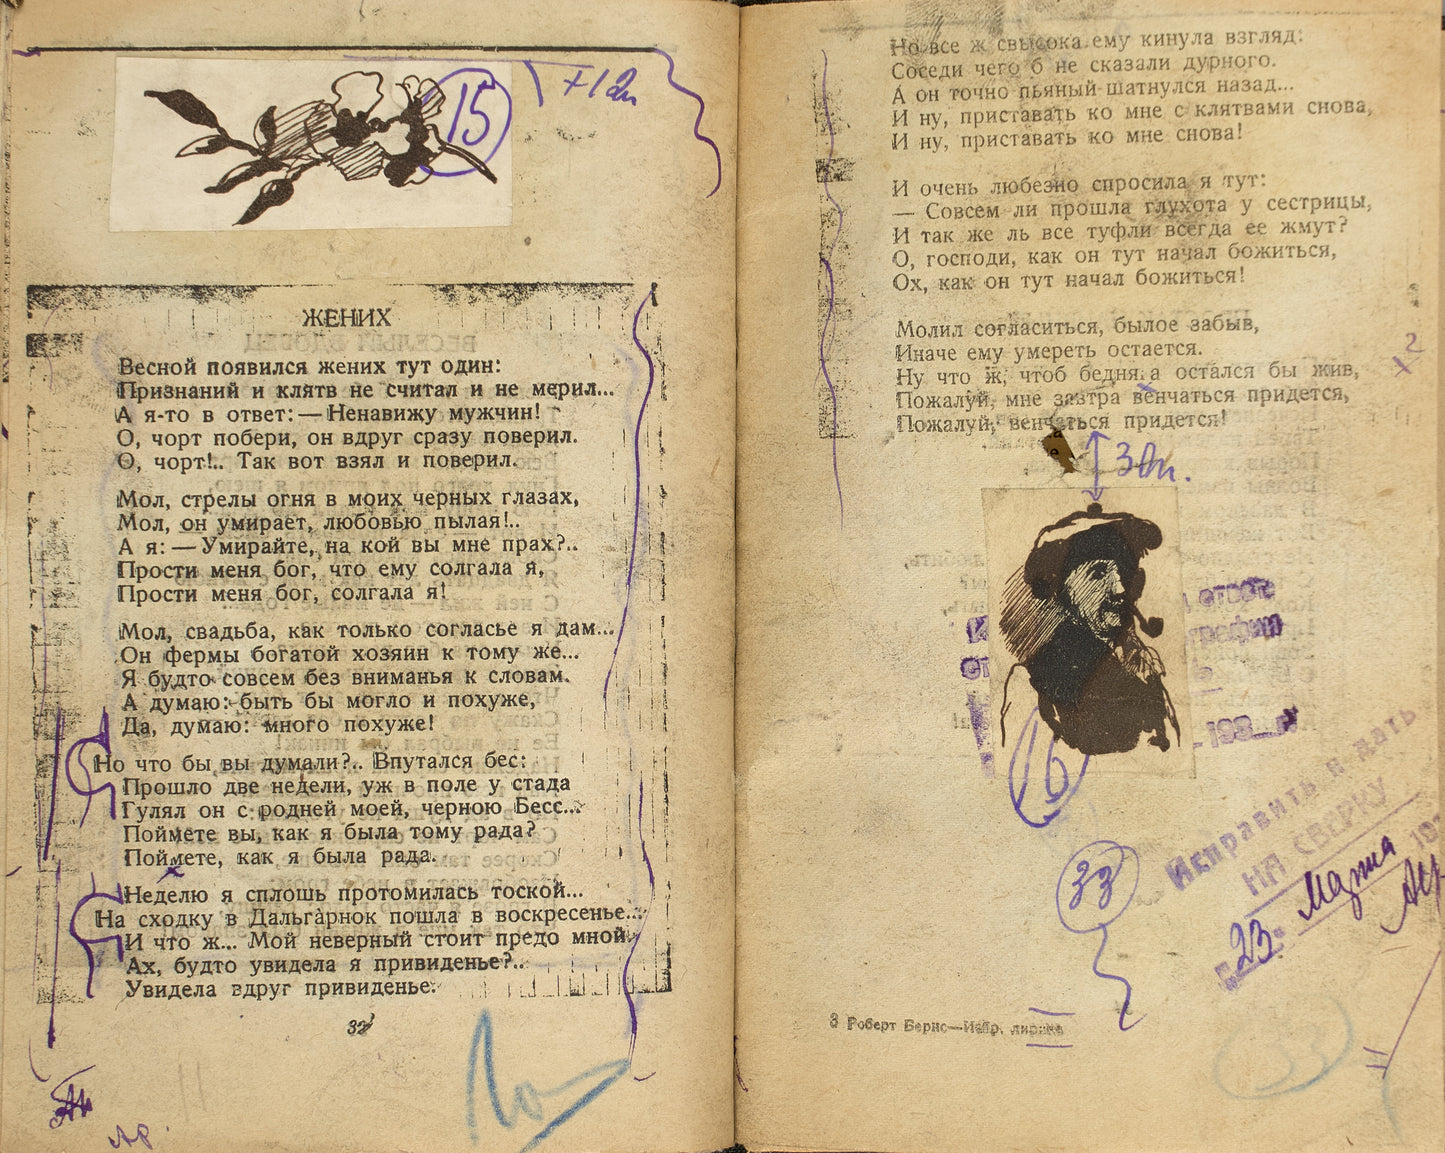 15
+12п
ЖЕНИХ
Весной появился жених тут один:
Признаний и клятв не считал и не мерил...
А я-то в ответ: — Ненавижу мужчин!
О, чорт побери, он вдруг сразу поверил.
О, чорт!.. Так вот взял и поверил.
Мол, стрелы огня в моих черных глазах,
Мол, он умирает, любовью пылая!..
А я: — Умирайте, на кой вы мне прах?..
Прости меня бог, что ему солгала я,
Прости меня бог, солгала я!
Мол, свадьба, как только согласье я дам...
Он фермы богатой хозяин к тому же...
Я будто совсем без вниманья к словам.
А думаю: быть бы могло и похуже,
Да, думаю: много похуже!
Но что бы вы думали?.. Впутался бес:
Прошло две недели, уж в поле у стада
Гулял он с родней моей, черною Бесс...
Поймете вы, как я была тому рада?
Поймете, как я была рада.
Неделю я сплошь протомилась тоской...
На сходку в Дальгарнок пошла в воскресенье...
И что ж... Мой неверный стоит предо мной.
Ах, будто увидела я привиденье?..
Увидела вдруг привиденье.
32
Но все ж свысока ему кинула взгляд:
Соседи чего б не сказали дурного.
А он точно пьяный шатнулся назад...
И ну, приставать ко мне с клятвами снова,
И ну, приставать ко мне снова!
И очень любезно спросила я тут:
— Совсем ли прошла глухота у сестрицы,
И так же ль все туфли всегда ее жмут?
О, господи, как он тут начал божиться,
Ох, как он тут начал божиться!
Молил согласиться, былое забыв,
Иначе ему умереть остается.
Ну что ж, чтоб бедняга остался бы жив,
Пожалуй, мне завтра венчаться придется,
Пожалуй, венчаться придется!
30п.
16
198 г.
Исправить и дать
НА СВЕРКУ
23 Марта
33
3 Роберт Бернс—Избр. лирика
33